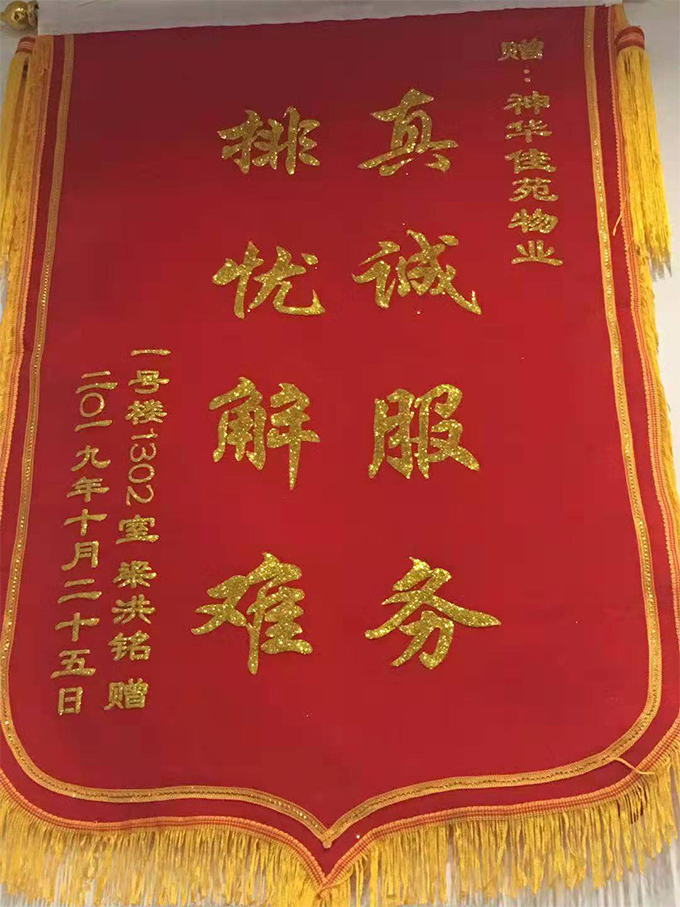 赠：神华佳苑物业
真诚服务
排忧解难
一号楼1302室 梁洪铭 赠
二〇一九年十月二十五日